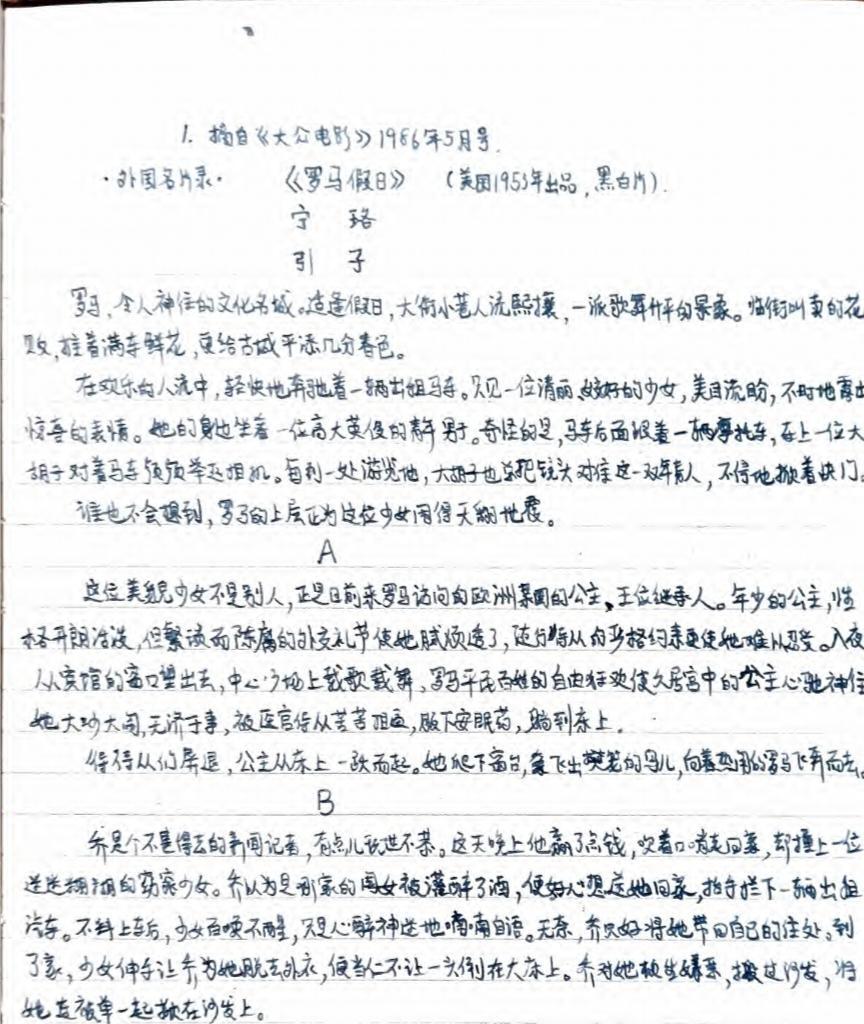 1. 摘自《大众电影》1986年5月号.
·外国名片录· 《罗马假日》 (美国1953年出品,黑白片).
宁 珞
引 子
罗马,令人神往的文化名城。适逢假日,大街小巷人流熙攘,一派歌舞升平的景象。临街叫卖的花
贩,推着满车鲜花,更给古城平添几分春色。
在欢乐的人流中,轻快地奔驰着一辆出租马车。只见一位清丽姣好的少女,美目流盼,不时地露出
惊喜的表情。她的身边坐着一位高大英俊的青年男子。奇怪的是,马车后面跟着一辆摩托车,车上一位大
胡子对着马车频频举起相机。每到一处游览地,大胡子也总把镜头对准这一双年青人,不停地揿着快门。
谁也不会想到,罗马的上层正为这位少女闹得天翻地覆。
A
这位美貌少女不是别人,正是日前来罗马访问的欧洲某国的公主、王位继承人。年少的公主,性
格开朗活泼,但繁琐而陈腐的外交礼节使她腻烦透了,随行侍从的严格约束更使她难以忍受。入夜
从宾馆的窗口望出去,中心广场上载歌载舞,罗马平民百姓的自由狂欢使久居宫中的公主心驰神往
她大吵大闹,无济于事,被医官侍从苦苦相逼,服下安眠药,躺到床上.
待侍从们屏退,公主从床上一跃而起。她爬下窗台,象飞出樊笼的鸟儿,向着热闹的罗马飞奔而去。
B
乔是个不走得去的新闻记者,有点儿玩世不恭。这天晚上他赢了点钱,吹着口哨走回家,却撞上一位
迷迷糊糊的窈窕少女。乔以为是哪家的闺女被灌醉了酒,便好心想送她回家,招手拦下一辆出租
汽车。不料上车后,少女百唤不醒,只是心醉神迷地喃喃自语。无奈,乔只好将她带回自己的住处。到
了家,少女伸手让乔为她脱去外衣,便当仁不让一头倒在大床上。乔对她顿生嫌恶,搬过沙发,将
她连被单一起掀在沙发上。